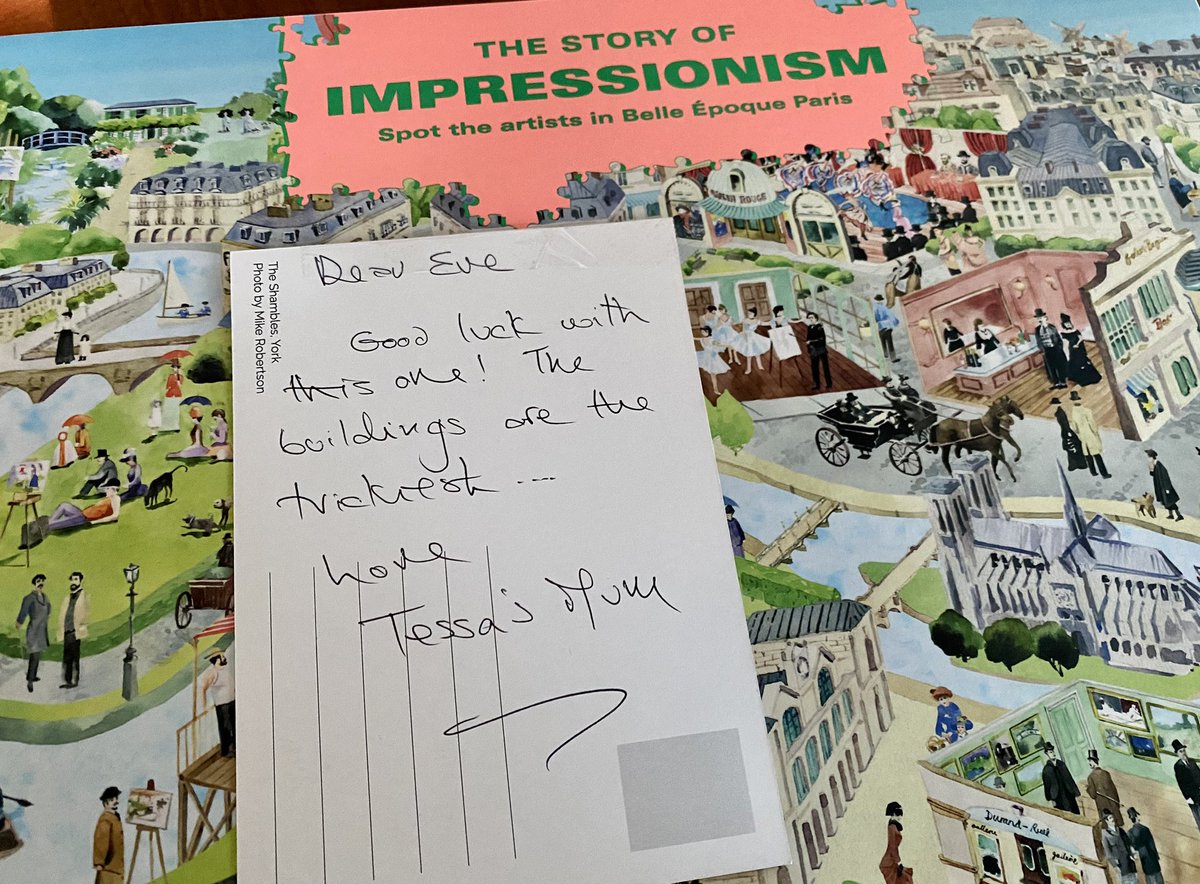 THE STORY OF
IMPRESSIONISM
Spot the artists in Belle Époque Paris
The Shambles, York
Photo by Mike Robertson
Dear Eve
Good luck with
this one! The
buildings are the
trickiest ....
Love
Tessa's Mum
ROUGE
Bar
Durand-Ruel
galerie